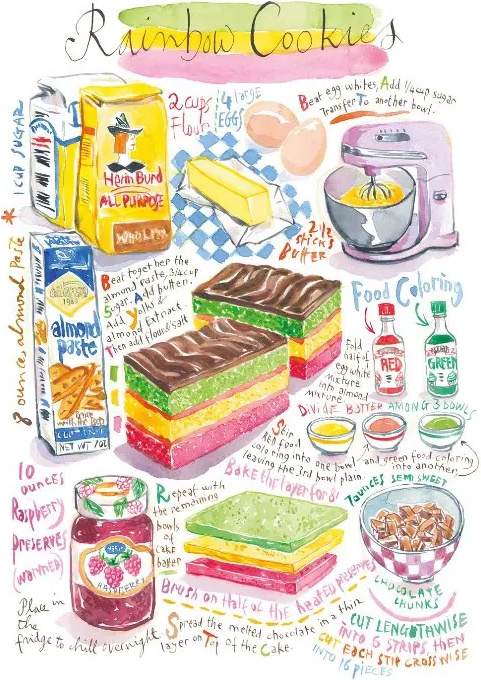 Rainbow Cookies
* 1 CUP SUGAR
2 cups
Flour
4 large
EGGS
Beat egg whites, Add 1/4 cup sugar
Transfer To another bowl.
ALL PURPOSE
2 1/2
sticks
Butter
8 ounces almond Paste
almond
paste
NET WT 7OZ
Beat together the
almond paste, 3/4 cup
Sugar. Add butter.
Add yolks &
almond Extract.
Then add flour & salt
Food Coloring
RED
GREEN
Fold
half of
egg white
mixture
into almond
mixture
DiViDE BUTTER AMONG 3 BOWLS
Stir
red food
coloring into one bowl and green food coloring
leaving the 3rd bowl plain into another
Bake the layer for 8'
10
ounces
Raspberry
Preserves
(warmed)
RASPBERRY
Repeat with
the remaining
bowls
of
cake
baker
7 OUNCES SEMI SWEET
CHOCOLATE
CHUNKS
Brush on Half of the heated preserves
Place in
the
fridge to chill overnight
Spread the melted chocolate in a thin
layer on Top of the Cake.
CUT LENGTHWISE
INTO 6 STRIPS, THEN
CUT EACH STIP CROSSWISE
INTO 16 PIECES